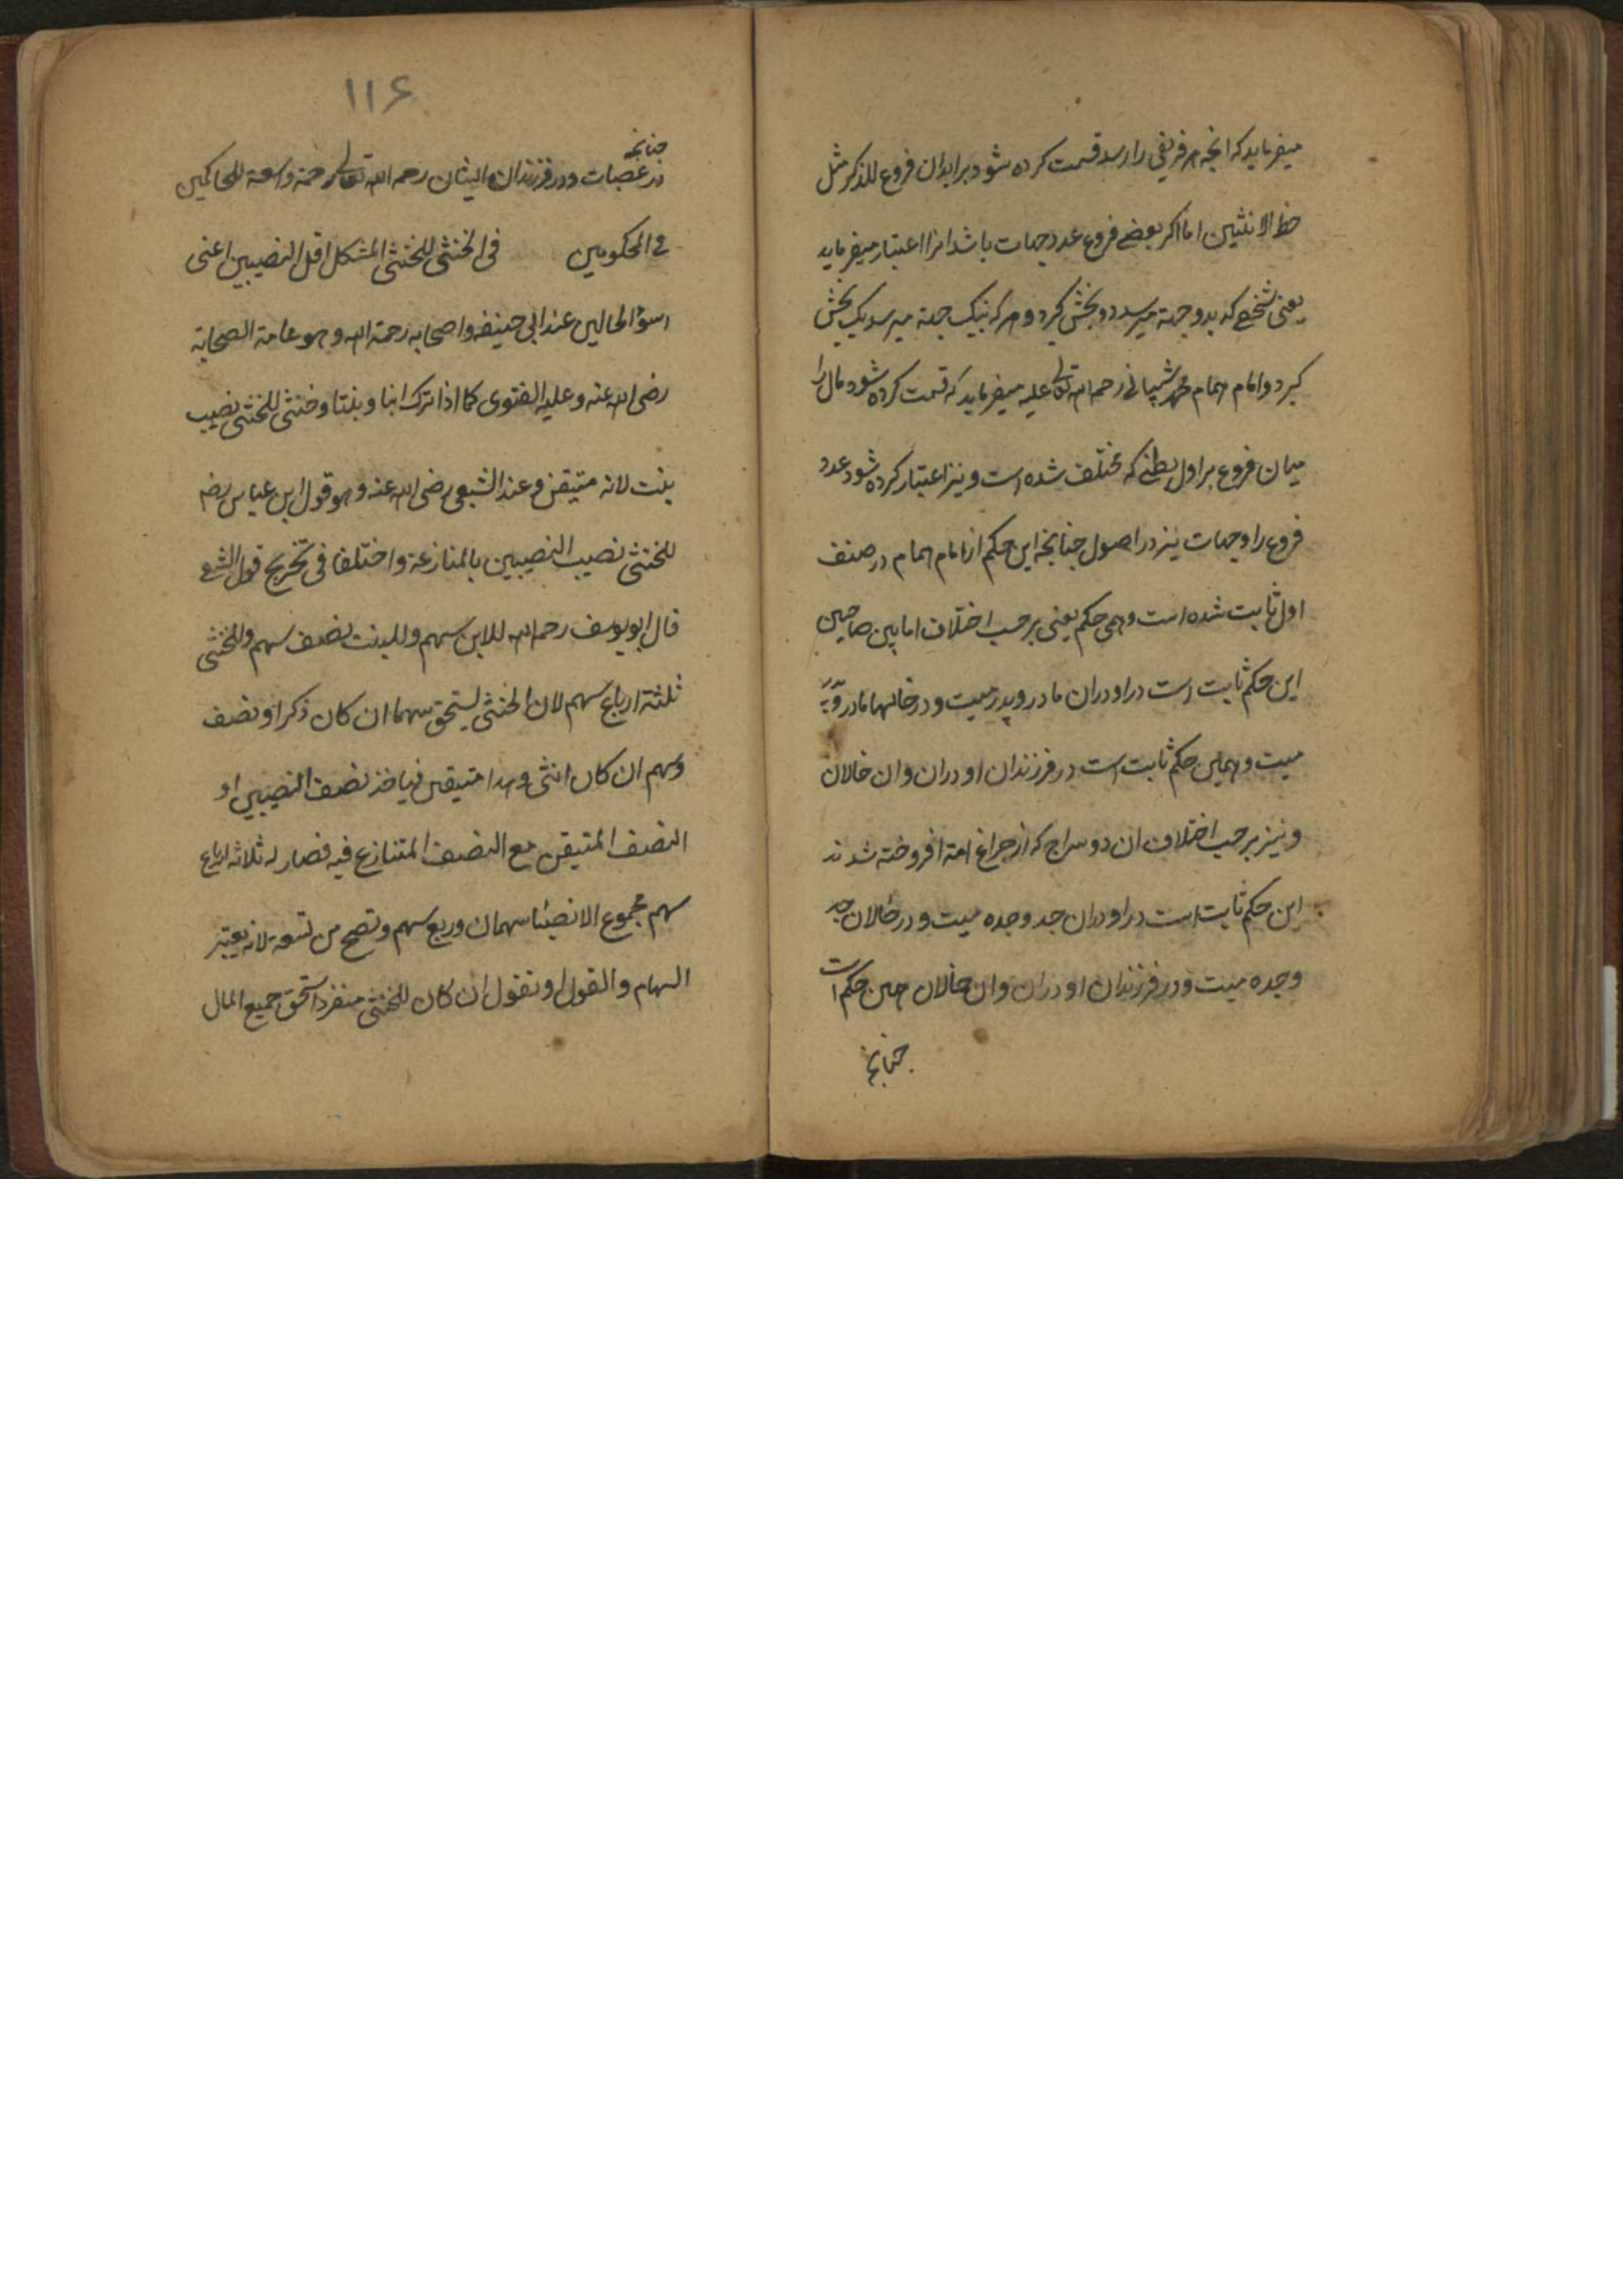 میفرماید که انچه هر فریقی را رسد قسمت کرده شود بر ابدان فروع للذکر مثل
حظ الانثیین اما اکر بعضے فروع عدد جهات باشد انرا اعتبار میفرماید
یعنی شخصے که بدو جهة میرسد دو بخش کیرد و هر که بیک جهة میرسد یک بخش
کیرد و امام همام محمد شیبانی رحمه الله تعالی علیه میفرماید که قسمت کرده شود مال را
میان فروع بر اول بطنے که مختلف شده است و نیز اعتبار کرده شود عدد
فروع را و جهات نیز در اصول چنانچه این حکم از امام همام در صنف
اول ثابت شده است و همی حکم یعنی بر حسب اختلاف امابین صاحبین
این حکم ثابت است در اودران مادر و پدر میت و در خالها مادر و پدر
میت و همین حکم ثابت است در فرزندان اودران و ان خالان
و نیز بر حسب اختلاف ان دو سراج که از چراغ امة افروخته شدند
این حکم ثابت است در اودران جد و جده میت و در خالان جد
وجده میت و در فرزندان اودران و ان خالان همین حکم است
چنانچه
۱۱۶
چنانچه
در عصبات و در فرزندان الیشان رحمه الله تعالی رحمة واسعة للحاکمین
فی المحکومین فی الخنثی للخنثی المشکل اقل النصیبین اعنی
اسوأ الحالین عند ابی حنیفه و اصحابه رحمة الله وهو عامة الصحابة
رضی الله عنه وعلیه الفتوی کما اذا ترک ابنا وبنتا وخنثی للخنثی نصیب
بنت لانه متیقن وعند الشعبی رضی الله عنه وهو قول ابن عباس رضه
للخنثی نصیب النصیبین بالمنازعة واختلفا فی تخریج قول الشعبی
قال ابو یوسف رحمه الله للابن سهم وللبنت نصف سهم وللخنثی
ثلثة ارباع سهم لان الخنثی یستحق سهما ان کان ذکرا ونصف
وسهم ان کان انثی وهذا متیقن فیاخذ نصف النصیبین او
النصف المتیقن مع النصف المتنازع فیه فصار له ثلاثة ارباع
سهم مجموع الانصبا سهمان وربع سهم وتصح من تسعة لانه یعتبر
السهام والقول او نقول ان کان للخنثی منفردا استحق جمیع المال